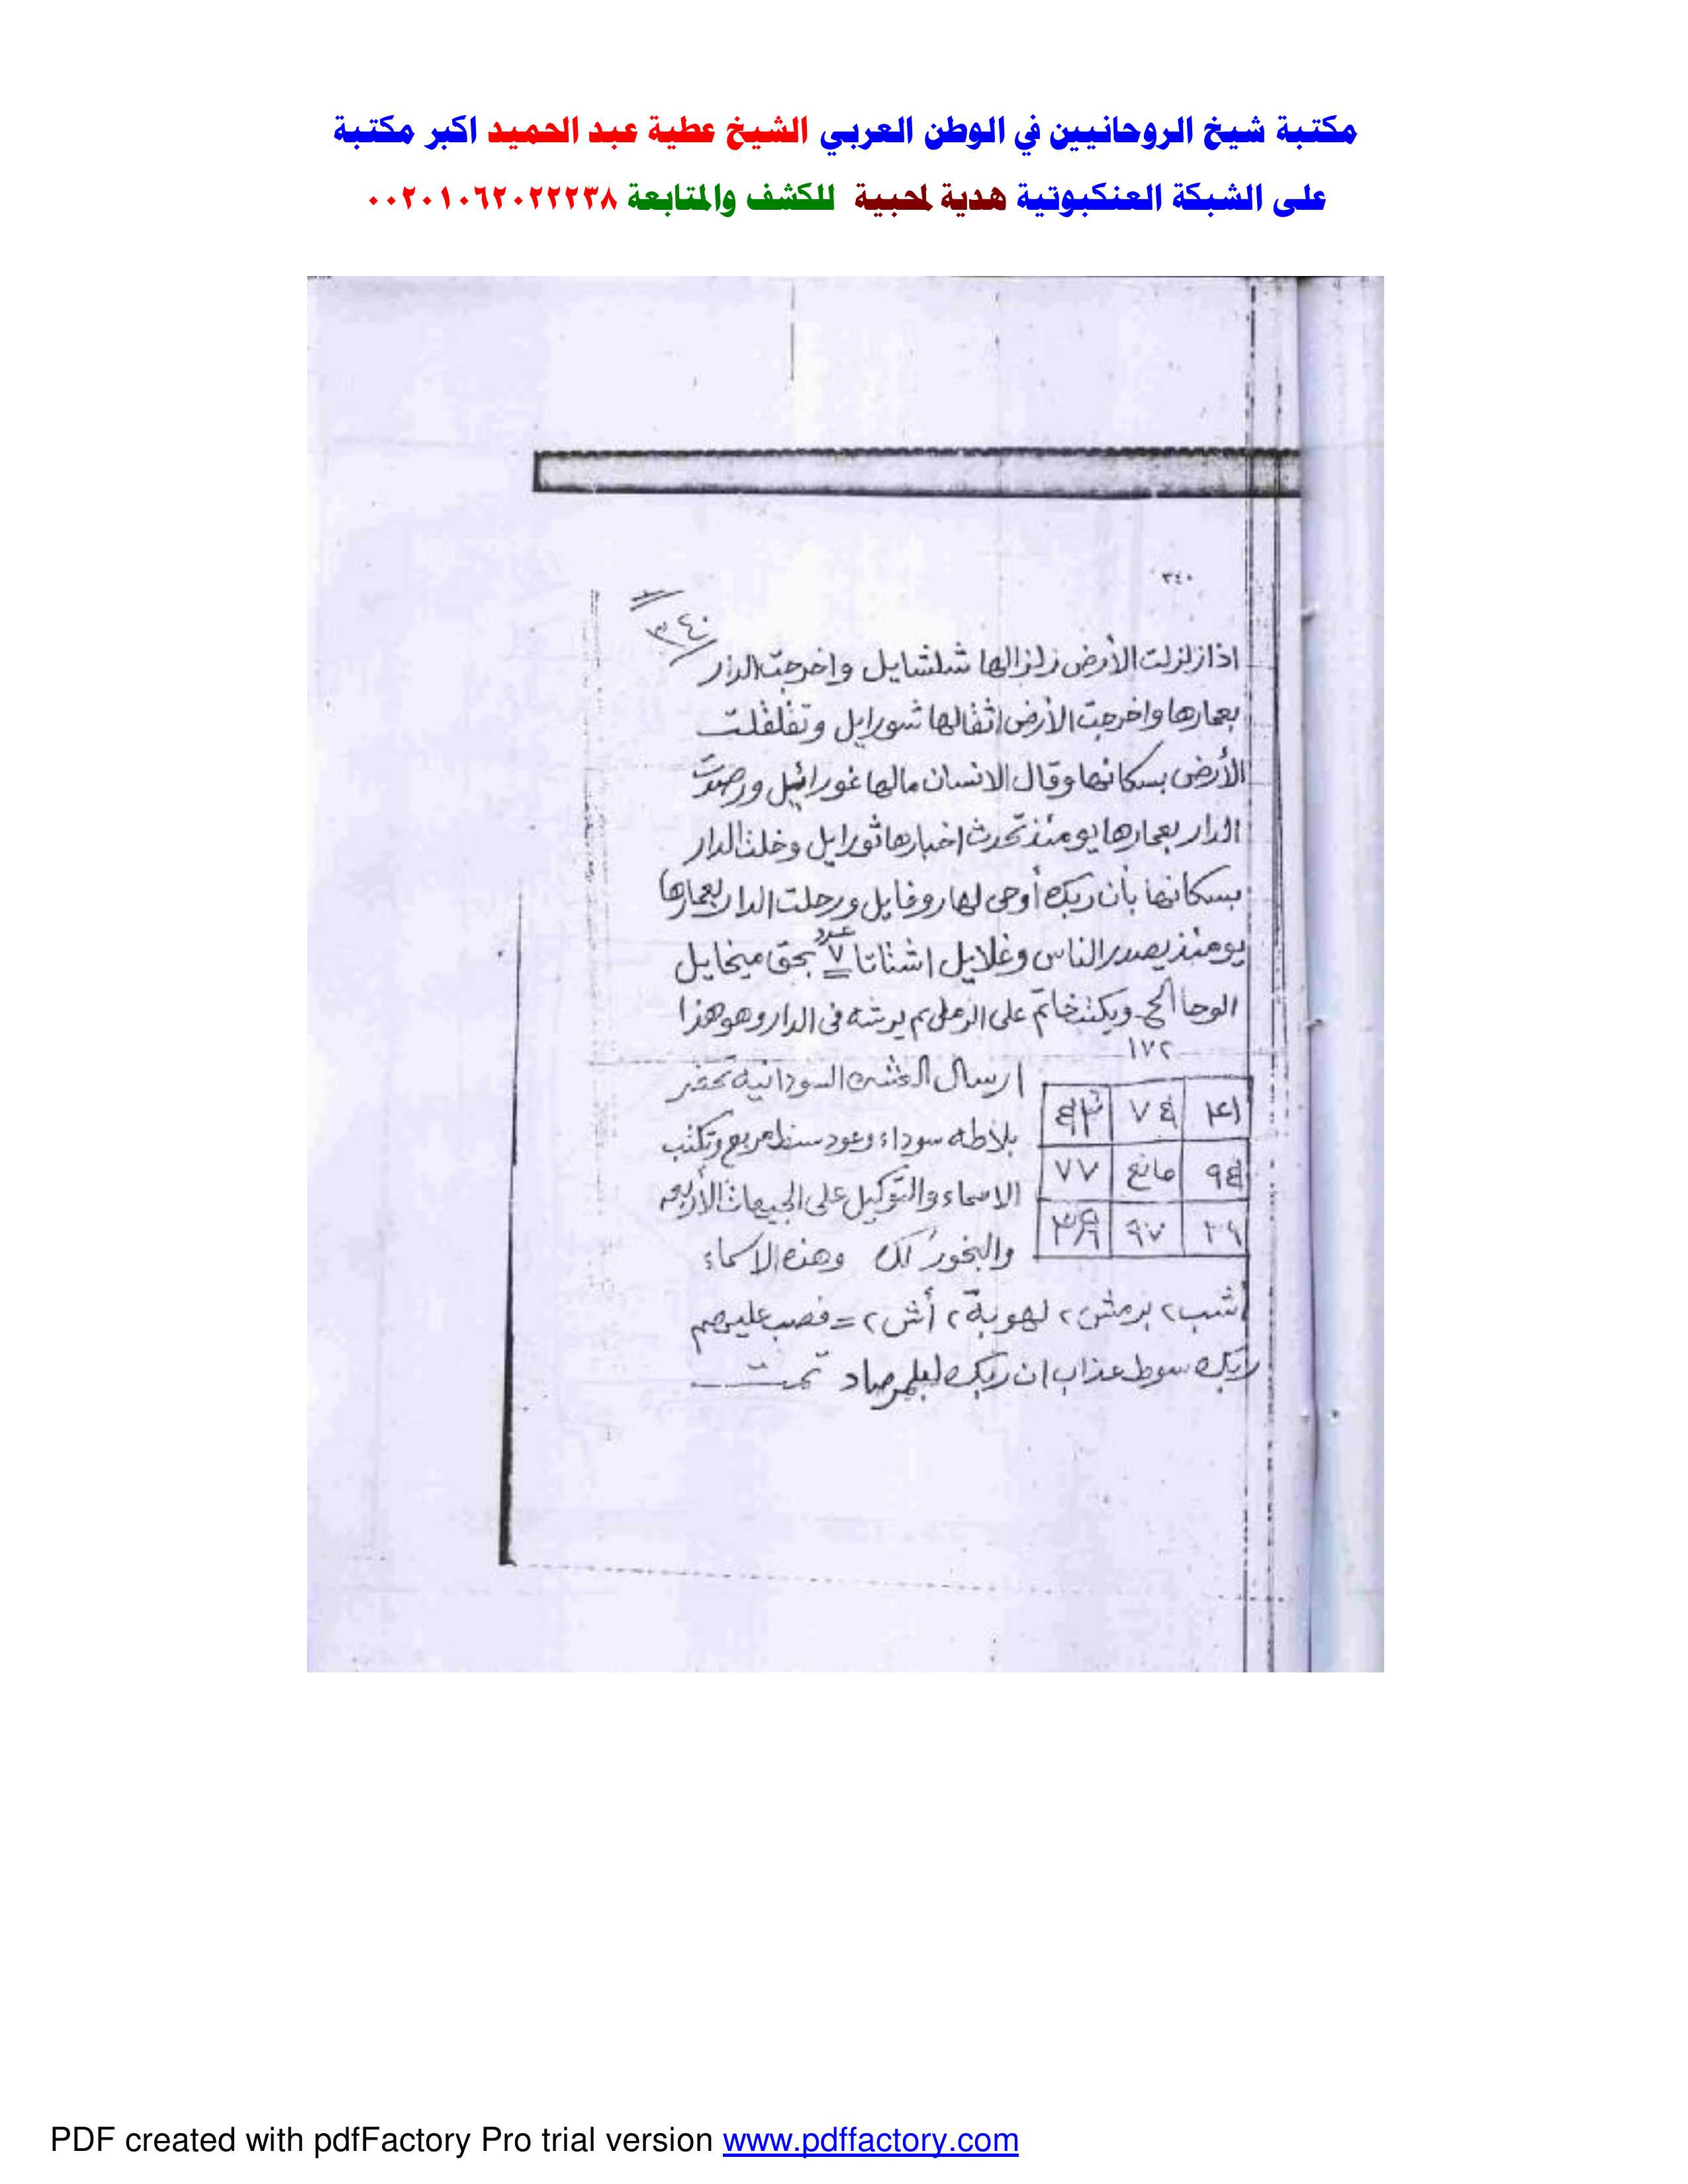 مكتبة شيخ الروحانيين في الوطن العربي الشيخ عطية عبد الحميد اكبر مكتبة
على الشبكة العنكبوتية هدية لمحبية للكشف والمتابعة ٠٠٢٠١٠٦٢٠٢٢٢٣٨
٣٤٠
٣٤٠
اذا زلزلت الأرض زلزالها شلشايل واخرجت الدار
بعمارها واخرجت الأرض اثقالها شورايل وتقلقلت
الأرض بسكانها وقال الانسان مالها غورائيل
الدار بعمارها يومئذ تحدث اخبارها ثورايل وخلت الدار
بسكانها بأن ربك أوحى لها روفايل ورحلت الدار بعمارها
يومئذ يصدر الناس وغلايل اشتاتا عدد ٧ بحق ميخايل
الوحا الح ويكتب خاتم على الرمل ثم يرشه فى الدار وهو هذا
١٧٢
ارسال السودانية تحضر
بلاطه سوداء وعود سنط مربع وتكتب
الاسماء والتوكيل على الجهات الأربعه
والبخور لك وهذه الاسماء
٧٤
٩٤ مانع ٧٧
٩٧
أشب ٢ برمش ٢ لهوبة ٢ أش ٢ = فصب عليهم
ربك سوط عذاب ان ربك لبلمرصاد تمت
PDF created with pdfFactory Pro trial version www.pdffactory.com